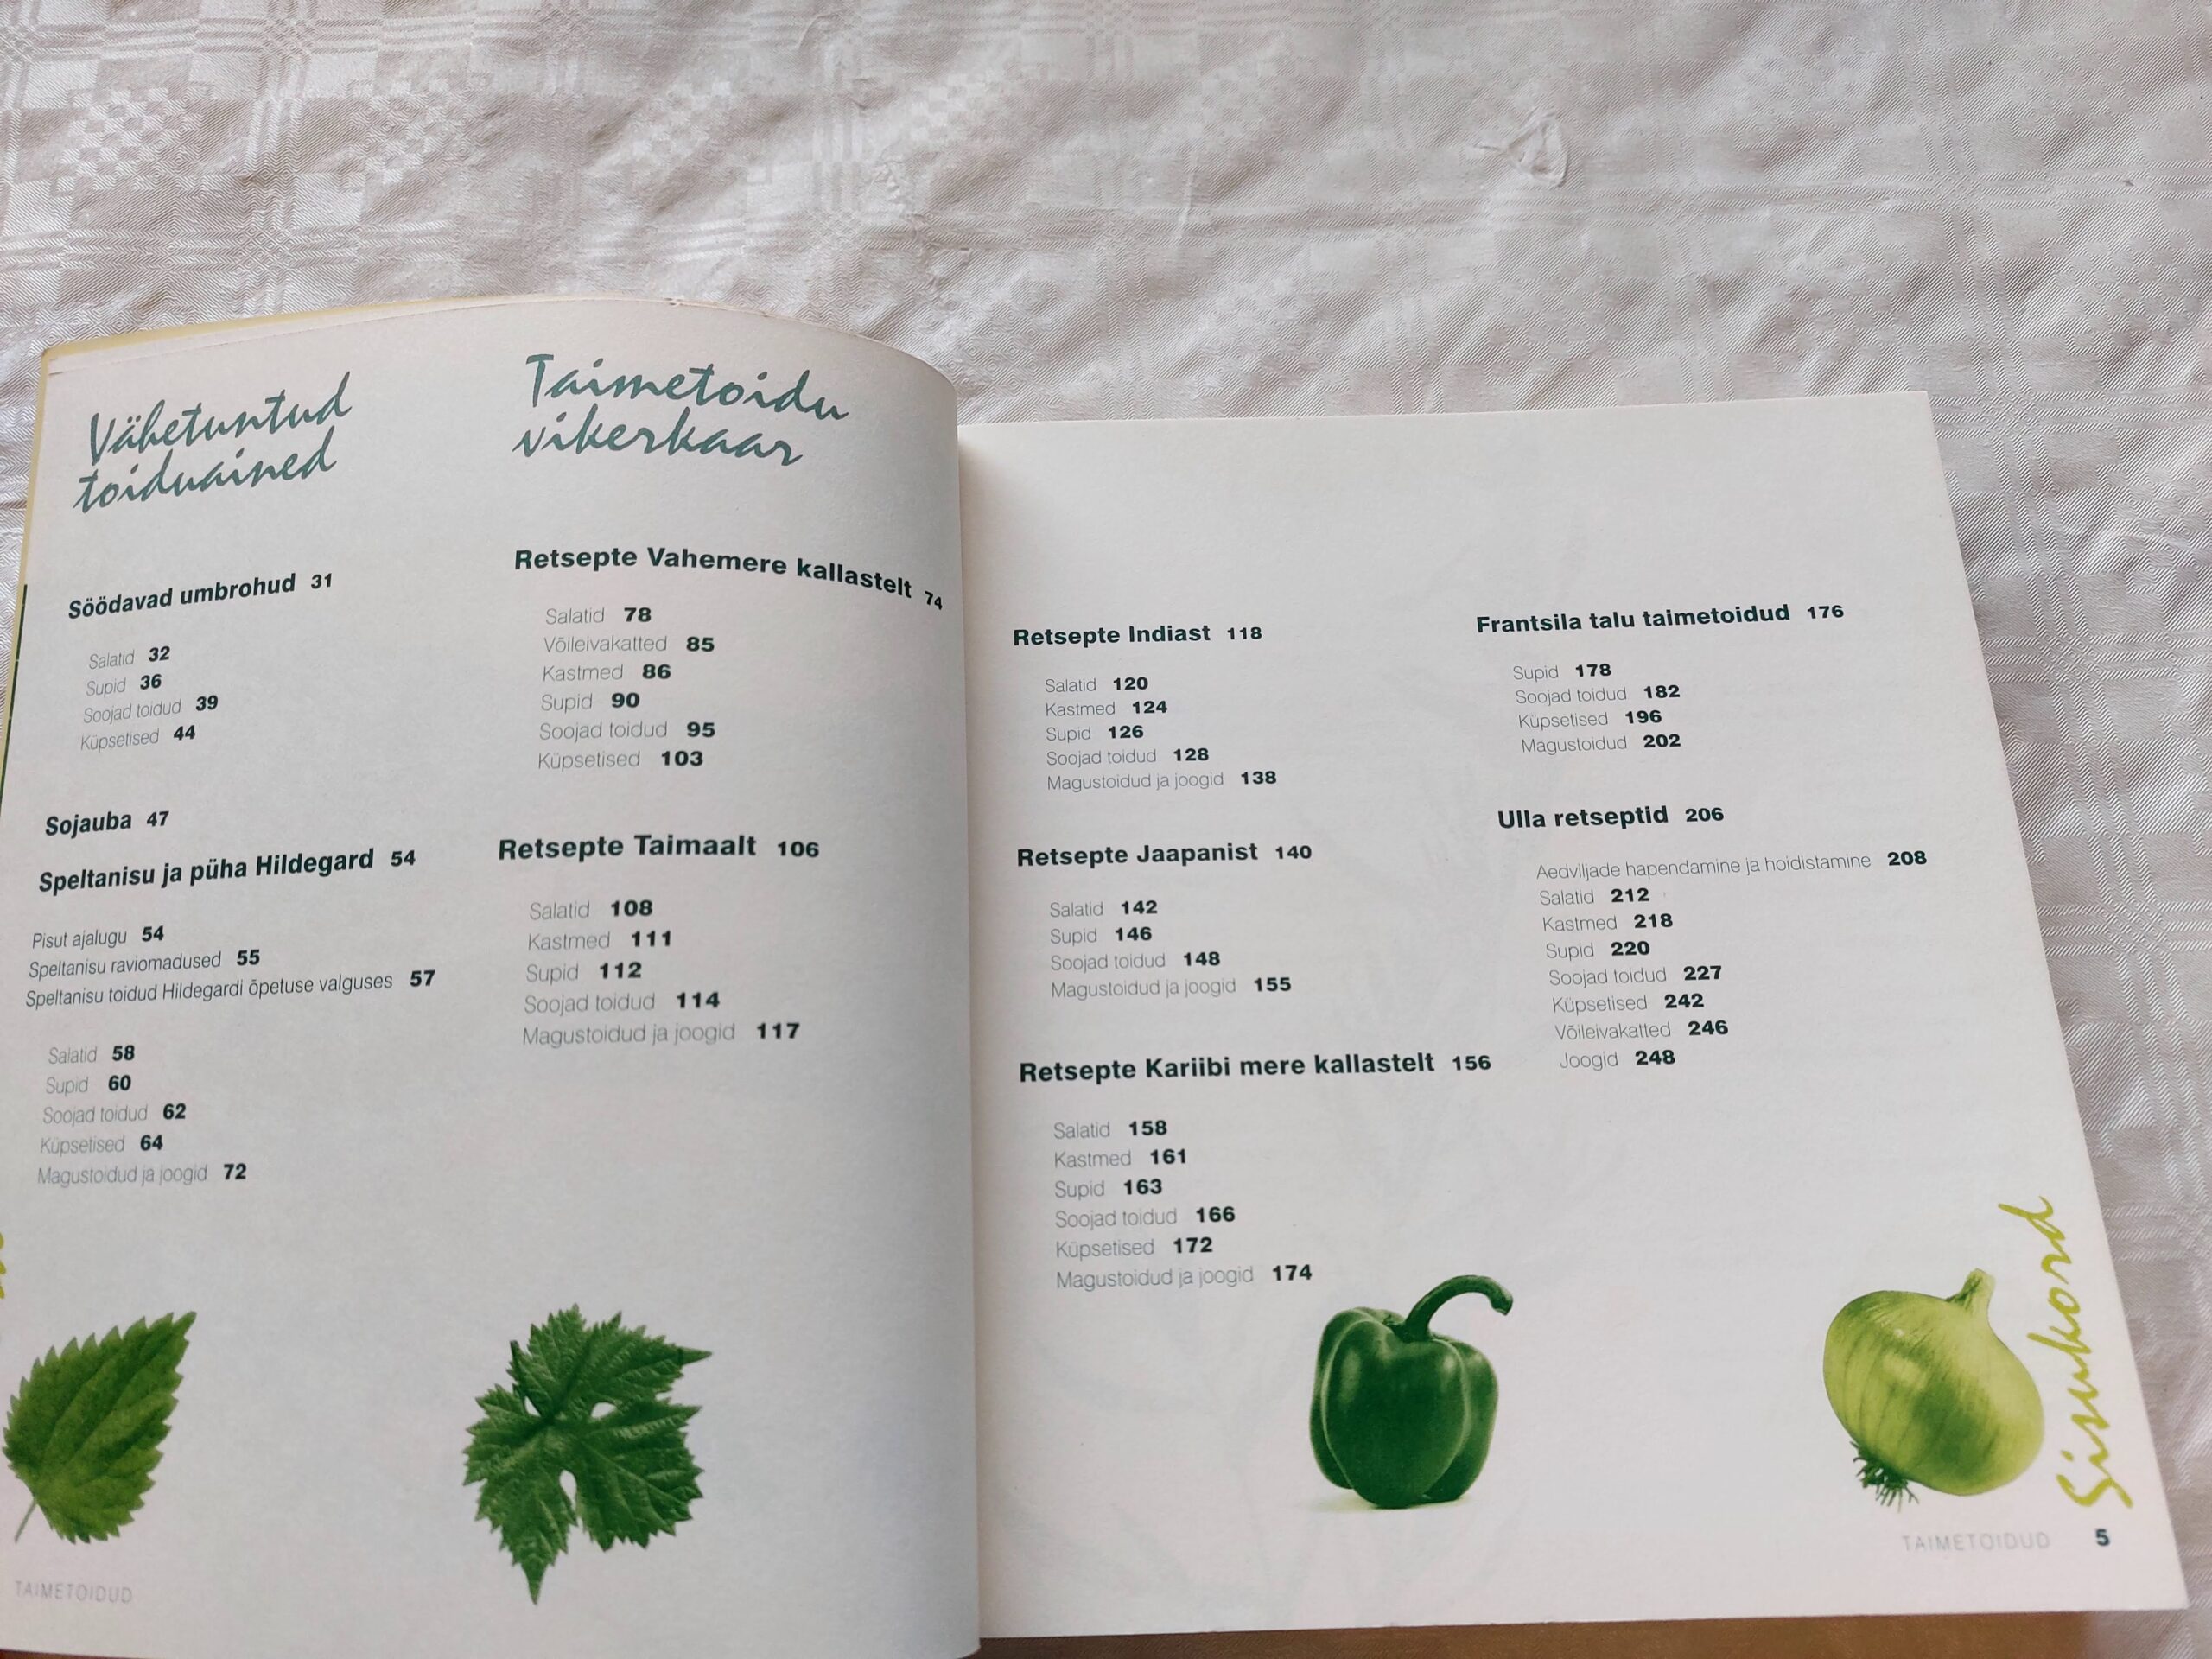 Vähetuntud
toiduained
Söödavad umbrohud 31
Salatid 32
Supid 36
Soojad toidud 39
Küpsetised 44
Sojauba 47
Speltanisu ja püha Hildegard 54
Pisut ajalugu 54
Speltanisu raviomadused 55
Speltanisu toidud Hildegardi õpetuse valguses 57
Salatid 58
Supid 60
Soojad toidud 62
Küpsetised 64
Magustoidud ja joogid 72
TAIMETOIDUD
Taimetoidu
vikerkaar
Retsepte Vahemere kallastelt 74
Salatid 78
Võileivakatted 85
Kastmed 86
Supid 90
Soojad toidud 95
Küpsetised 103
Retsepte Taimaalt 106
Salatid 108
Kastmed 111
Supid 112
Soojad toidud 114
Magustoidud ja joogid 117
Retsepte Indiast 118
Salatid 120
Kastmed 124
Supid 126
Soojad toidud 128
Magustoidud ja joogid 138
Retsepte Jaapanist 140
Salatid 142
Supid 146
Soojad toidud 148
Magustoidud ja joogid 155
Retsepte Kariibi mere kallastelt 156
Salatid 158
Kastmed 161
Supid 163
Soojad toidud 166
Küpsetised 172
Magustoidud ja joogid 174
Frantsila talu taimetoidud 176
Supid 178
Soojad toidud 182
Küpsetised 196
Magustoidud 202
Ulla retseptid 206
Aedviljade hapendamine ja hoidistamine 208
Salatid 212
Kastmed 218
Supid 220
Soojad toidud 227
Küpsetised 242
Võileivakatted 246
Joogid 248
Sisukord
TAIMETOIDUD 5